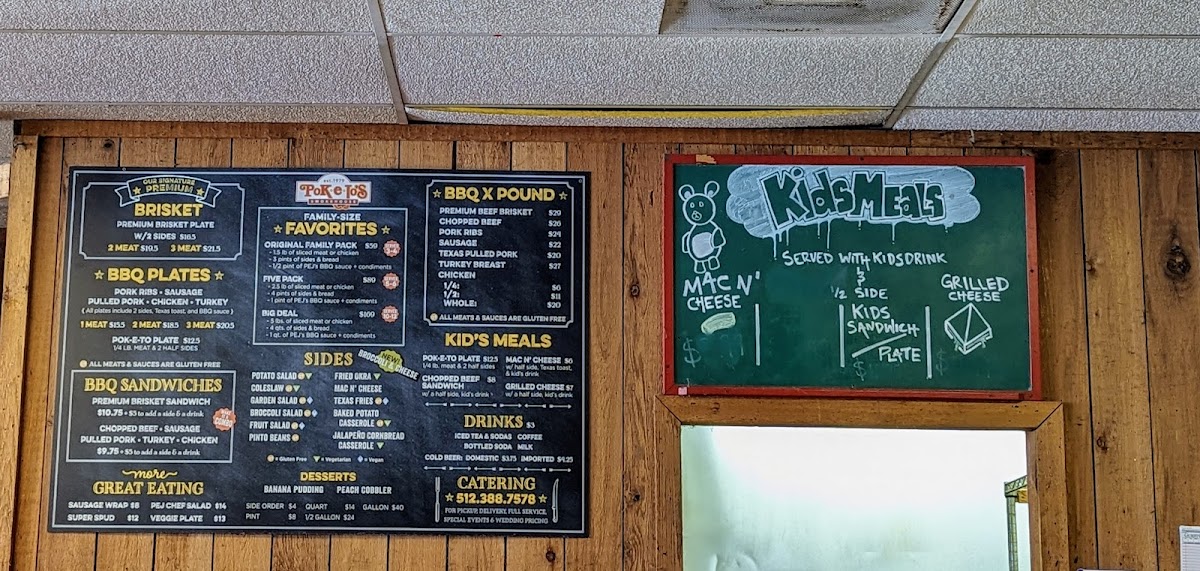 OUR SIGNATURE
PREMIUM
BRISKET
PREMIUM BRISKET PLATE
W/2 SIDES $16.5
2 MEAT $19.5 3 MEAT $21.5
BBQ PLATES
PORK RIBS • SAUSAGE
PULLED PORK • CHICKEN • TURKEY
( All plates include 2 sides, Texas toast, and BBQ sauce )
1 MEAT $15.5 2 MEAT $18.5 3 MEAT $20.5
POK-E-TO PLATE $12.5
1/4 LB. MEAT & 2 HALF SIDES
ALL MEATS & SAUCES ARE GLUTEN FREE
BBQ SANDWICHES
PREMIUM BRISKET SANDWICH
$10.75 • $5 to add a side & a drink
CHOPPED BEEF • SAUSAGE
PULLED PORK • TURKEY • CHICKEN
$9.75 • $5 to add a side & a drink
MAKE IT A COMBO
more
GREAT EATING
SAUSAGE WRAP $8 PEJ CHEF SALAD $14
SUPER SPUD $12 VEGGIE PLATE $13
EST. 1979
POK-E-JO'S
SMOKEHOUSE
FAMILY-SIZE
FAVORITES
ORIGINAL FAMILY PACK $59
- 1.5 lb of sliced meat or chicken
- 3 pints of sides & bread
- 1/2 pint of PEJ's BBQ sauce + condiments
FIVE PACK $89
- 2.5 lb of sliced meat or chicken
- 4 pints of sides & bread
- 1 pint of PEJ's BBQ sauce + condiments
BIG DEAL $169
- 5 lbs. sliced meat or chicken
- 4 qts. of sides & bread
- 1 qt. of PEJ's BBQ sauce + condiments
SERVES
10-12
SIDES
NEW!
BROCCOLI & CHEESE
POTATO SALAD
COLESLAW
GARDEN SALAD
BROCCOLI SALAD
FRUIT SALAD
PINTO BEANS
FRIED OKRA
MAC N' CHEESE
TEXAS FRIES
BAKED POTATO
CASSEROLE
JALAPEÑO CORNBREAD
CASSEROLE
= Gluten Free = Vegetarian = Vegan
DESSERTS
BANANA PUDDING PEACH COBBLER
SIDE ORDER $4 QUART $14 GALLON $40
PINT $8 1/2 GALLON $24
BBQ X POUND
PREMIUM BEEF BRISKET $29
CHOPPED BEEF $26
PORK RIBS $24
SAUSAGE $22
TEXAS PULLED PORK $20
TURKEY BREAST $27
CHICKEN
1/4: $6
1/2: $11
WHOLE: $20
ALL MEATS & SAUCES ARE GLUTEN FREE
KID'S MEALS
POK-E-TO PLATE $12.5
1/4 lb. meat & 2 half sides
CHOPPED BEEF $8
SANDWICH
w/ a half side, kid's drink
MAC N' CHEESE $6
w/ half side, Texas toast,
& kid's drink
GRILLED CHEESE $7
w/ a half side, kid's drink
DRINKS $3
ICED TEA & SODAS COFFEE
BOTTLED SODA MILK
COLD BEER: DOMESTIC $3.75 IMPORTED $4.25
CATERING
512.388.7578
FOR PICKUP, DELIVERY, FULL SERVICE,
SPECIAL EVENTS & WEDDING PRICING
KidS MEALS
SERVED WITH KIDS DRINK
&
1/2 SIDE
MAC N'
CHEESE
$
KIDS
SANDWICH
PLATE
$
GRILLED
CHEESE
$